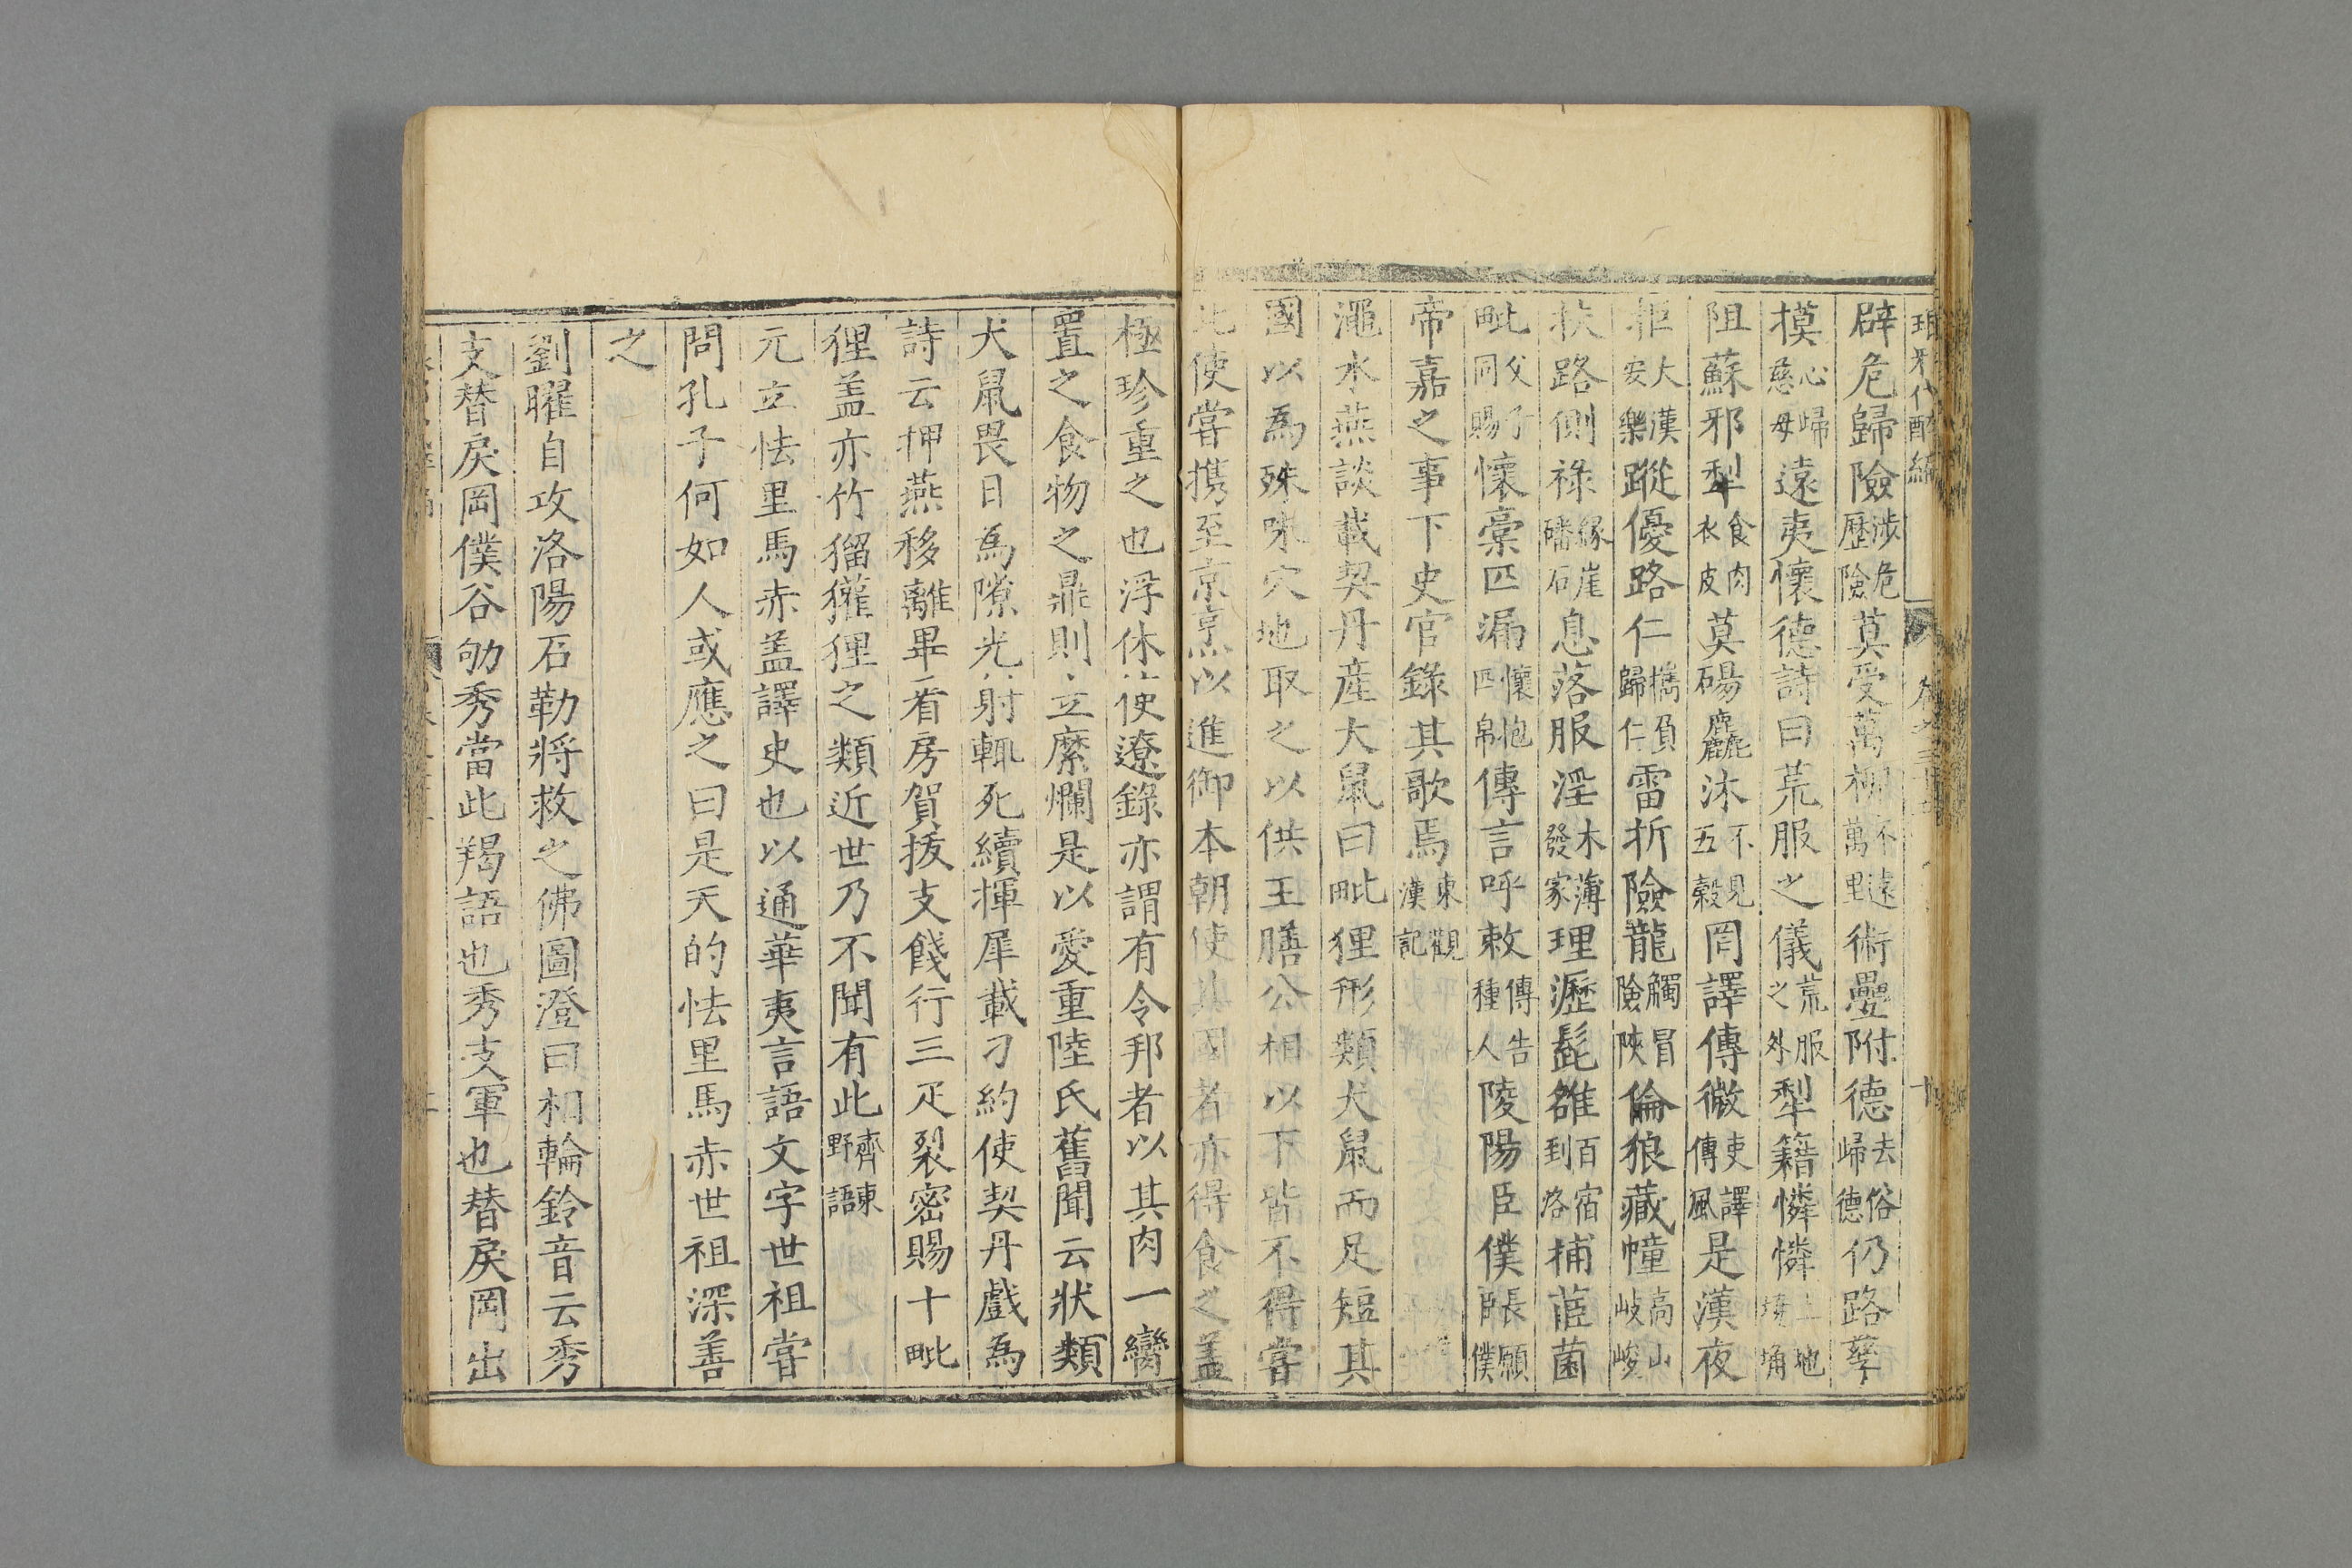 琅邪代醉編
辟危歸險涉危歷險莫受萬柳不遠萬里術疊附德去俗歸德仍路孳
摸心歸慈母遠夷懷德詩曰荒服之儀荒服之外犁籍憐憐土地墝埆
阻蘇邪犁食肉衣皮莫碭麤沐不見五穀罔譯傳微吏譯傳風是漢夜
拒大漢安樂蹤優路仁攜負歸仁雷折險龍觸冒險陜倫狼藏幢高山岐峻
扶路側祿緣崖磻石息落服淫木薄發家理瀝髭雒百宿到洛捕茝菌
毗父子同賜懷槀匹漏懷抱匹帛傳言呼敕傳告種人陵陽臣僕長願臣僕
帝嘉之事下史官錄其歌焉東觀漢記
澠水燕談載契丹產大鼠曰毗狸形類犬鼠而足短其
國以為殊味穴地取之以供王膳公相以下皆不得嘗
北使嘗携至京烹以進御本朝使其國者亦得食之盖
極珍重之也浮休使遼錄亦謂有令邦者以其肉一臠
置之食物之鼎則立糜爛是以愛重陸氏舊聞云狀類
犬鼠畏日為隙光射輒死續揮犀載刁約使契丹戲為
詩云押燕移離畢看房賀拔支餞行三疋裂密賜十毗
狸盖亦竹𪕋獾狸之類近世乃不聞有此齊東野語
元立怯里馬赤盖譯史也以通華夷言語文字世祖嘗
問孔子何如人或應之曰是天的怯里馬赤世祖深善
之
劉曜自攻洛陽石勒將救之佛圖澄曰相輪鈴音云秀
支替戾岡僕谷劬秀當此羯語也秀支軍也替戾岡出